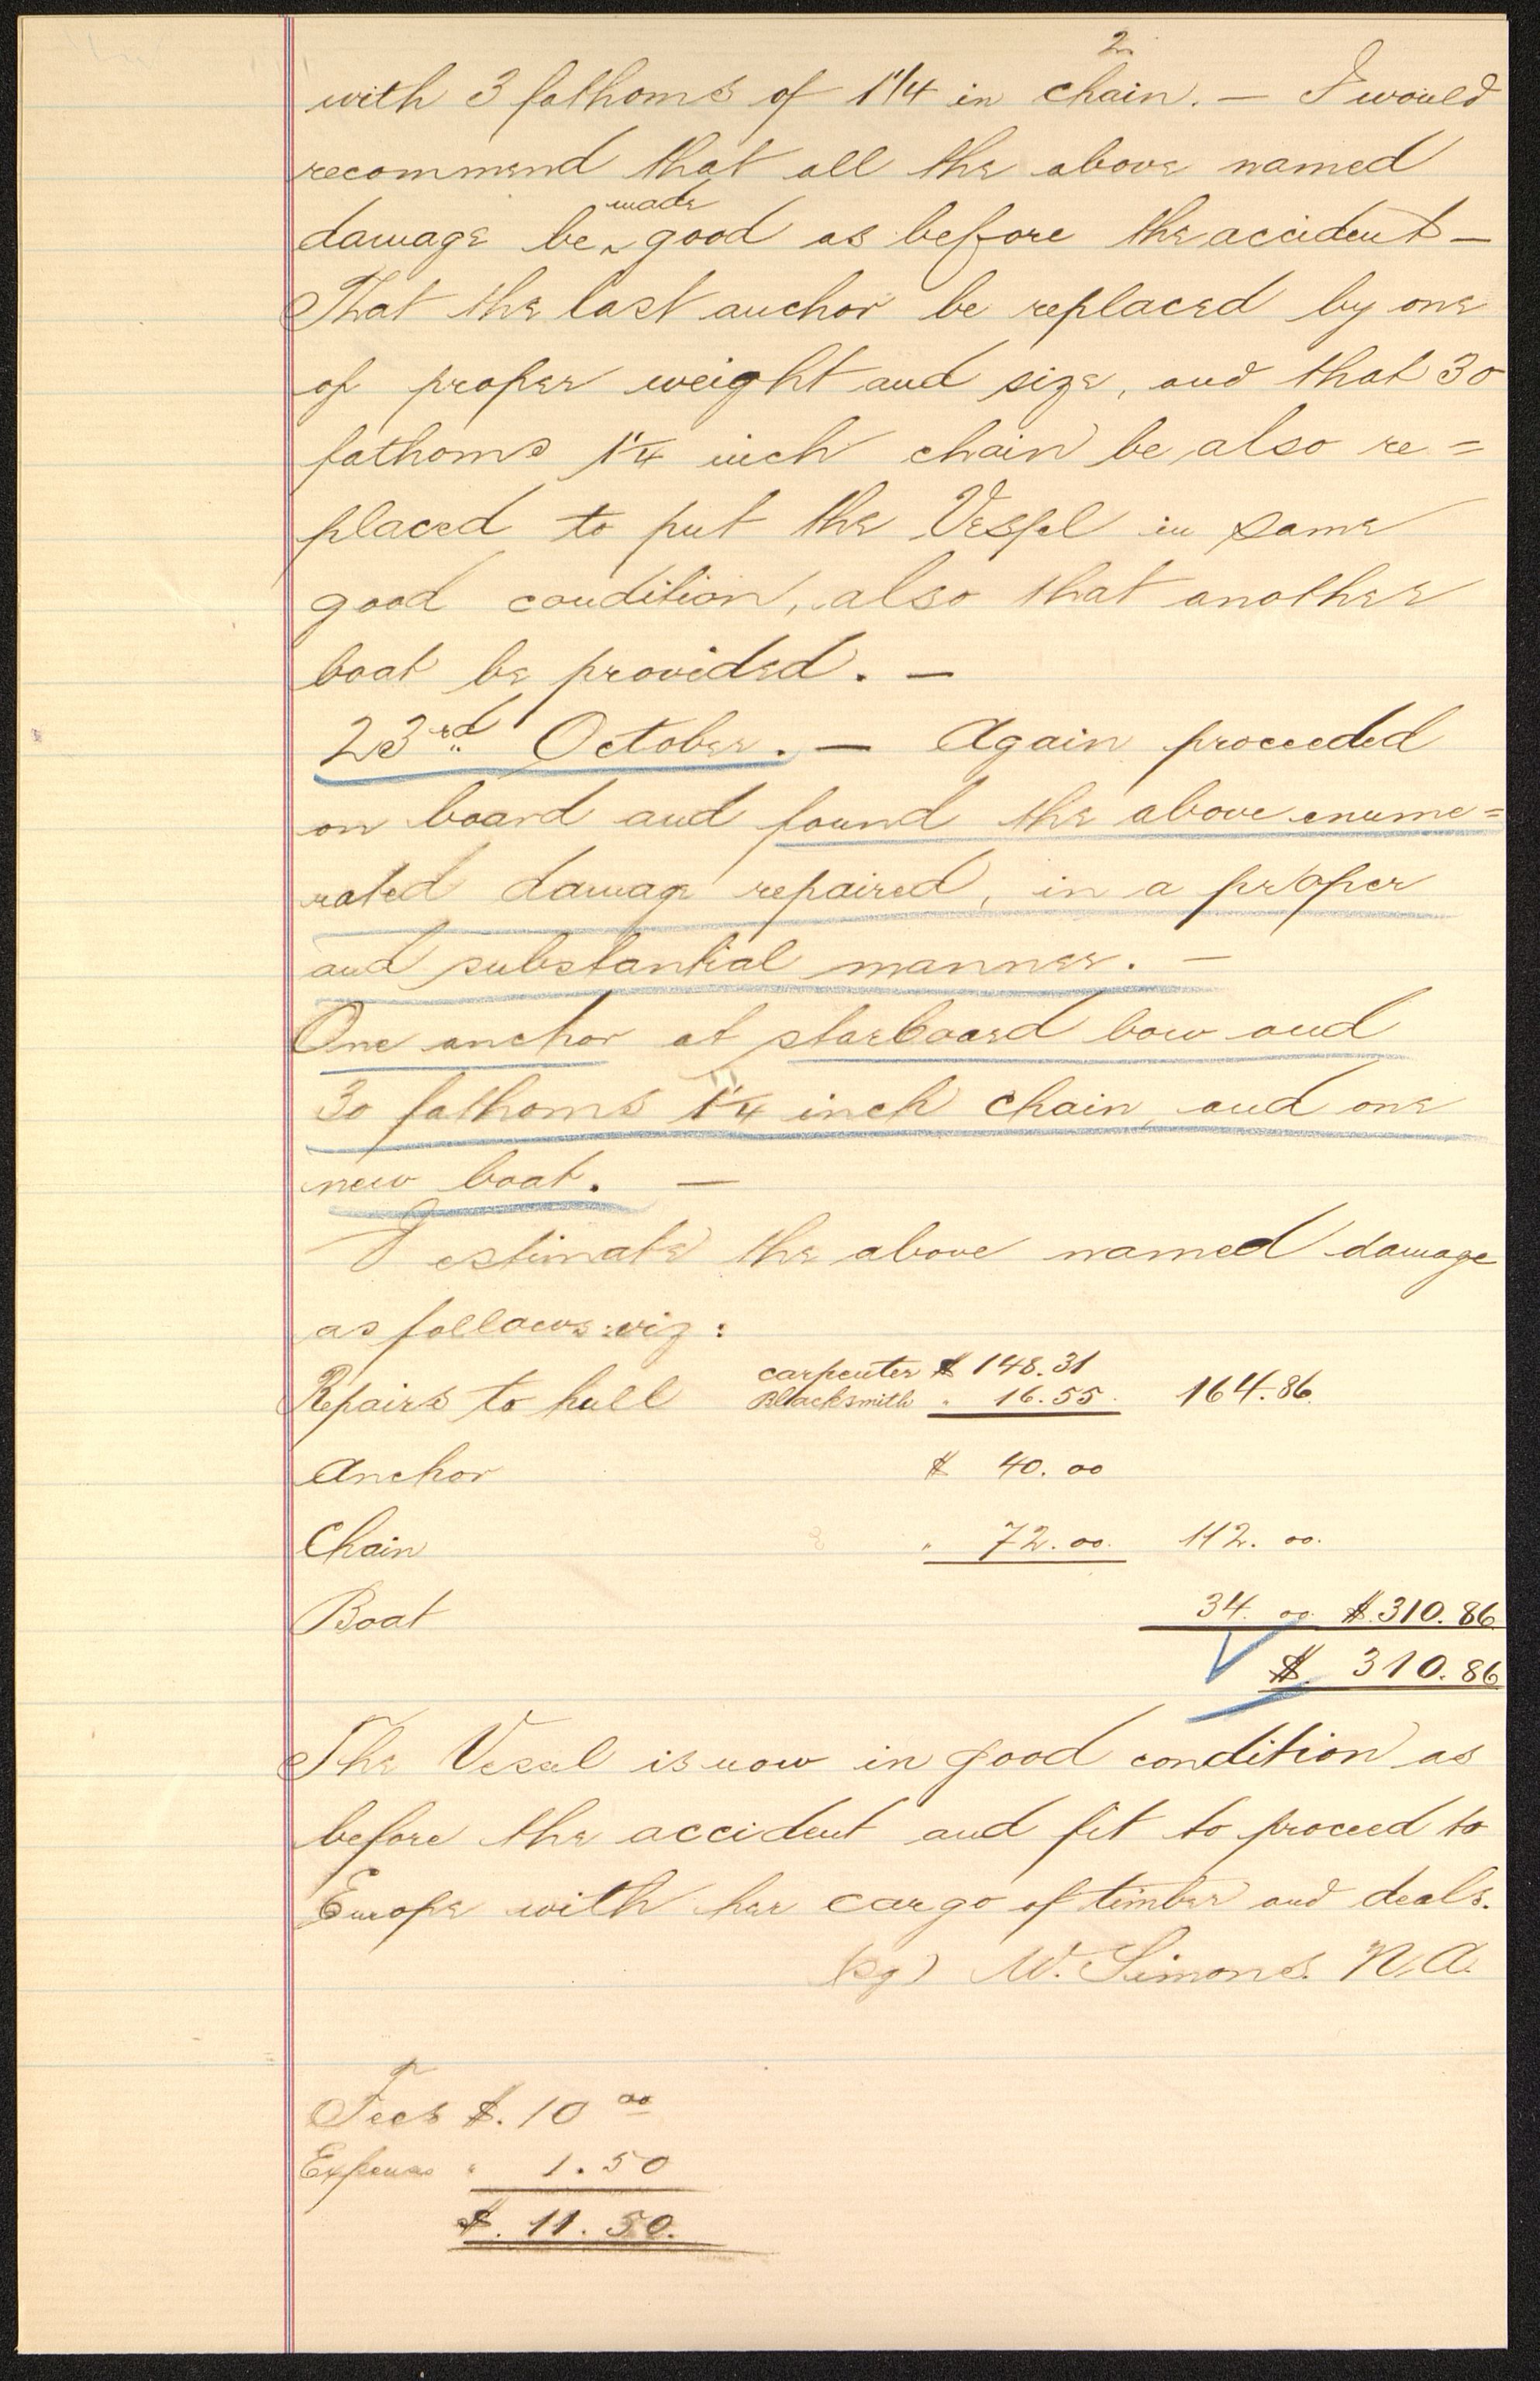 2
with 3 fathoms of 1 1/4 in chain. — I would
recommend that all the above named
made
damage be ^ good as before the accident —
That the lost anchor be replaced by one
of proper weight and size, and that 30
fathoms 1 1/4 inch chain be also re=
placed to put the Vessel in same
good condition, also that another
boat be provided. —
23rd October. — Again proceeded
on board and found the above enume=
rated damage repaired, in a proper
and substantial manner. —
One anchor at starboard bow and
30 fathoms 1 1/4 inch chain, and one
new boat. —
I estimate the above named damage
as follows: viz:
carpenter $ 148.31
Repairs to hull Blacksmith " 16.55. 164.86.
Anchor $ 40.00
Chain " 72.00. 112.00.
Boat 34.00 $.310.86
$. 310.86
The Vessel is now in good condition as
before the accident and fit to proceed to
Europe with her cargo of timber and deals.
(sg) W. Simons. N.A.
Fees $. 10 00
Expenses " 1.50
$. 11.50.